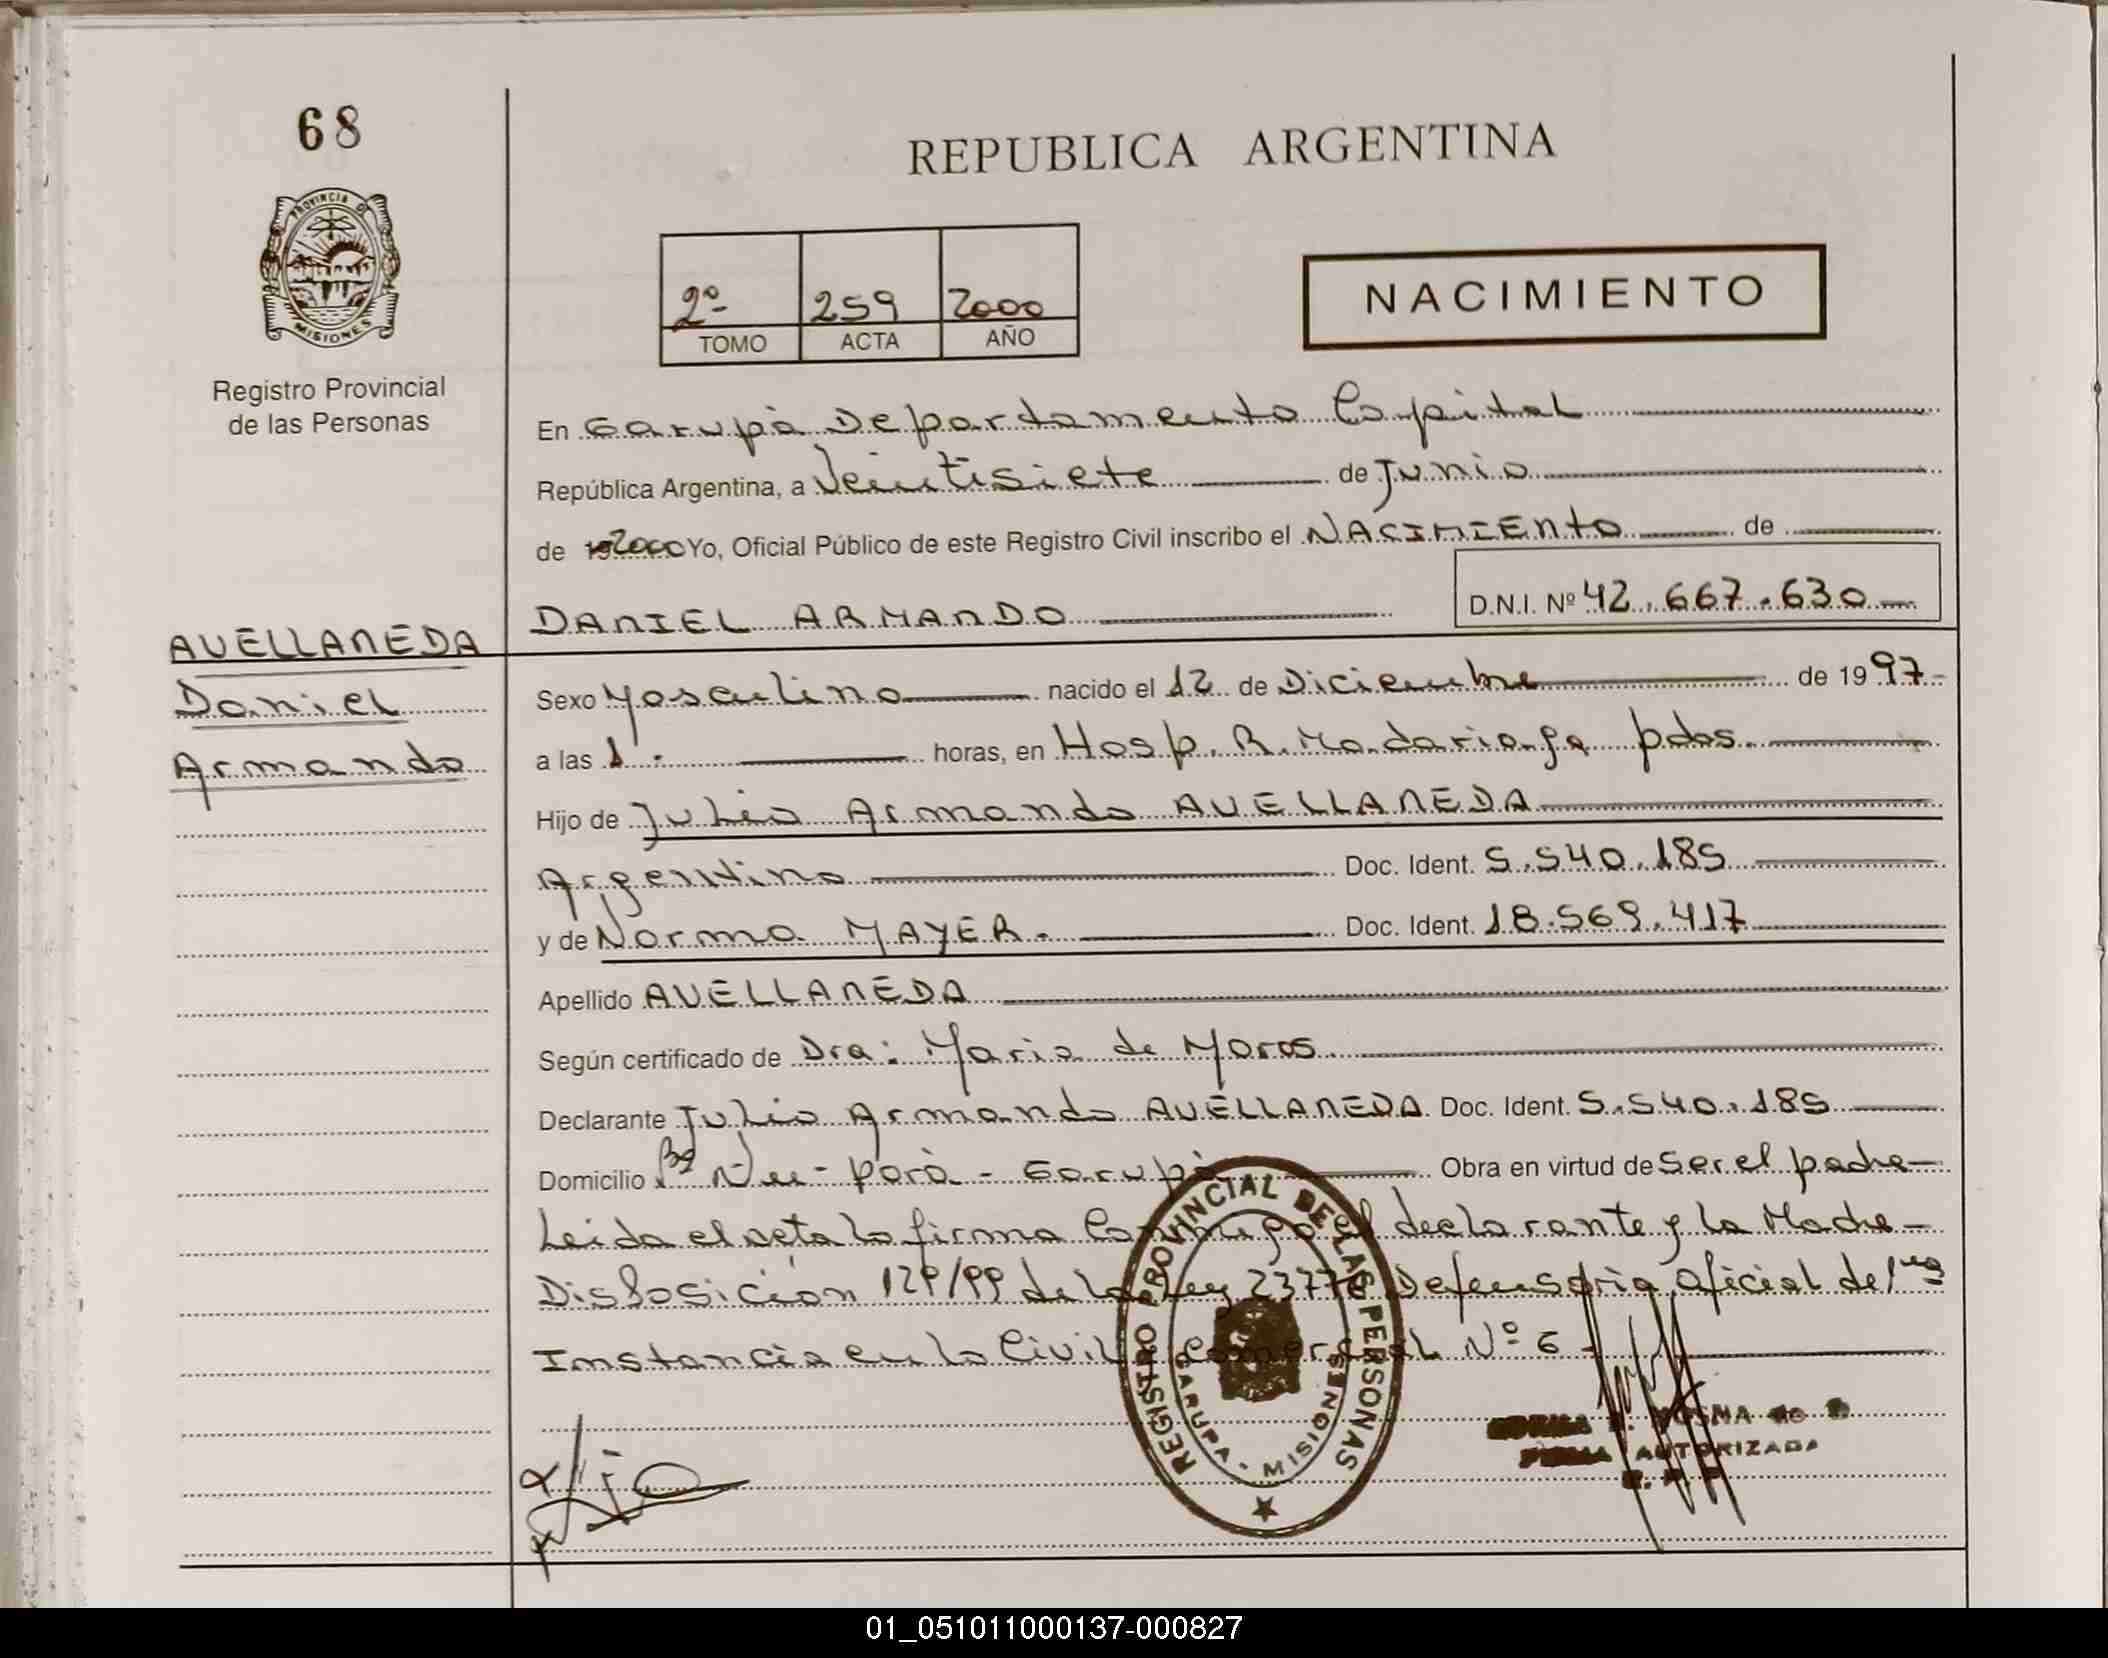 68
REPUBLICA ARGENTINA
PROVINCIA DE
MISIONES
Registro Provincial
de las Personas
2º 259 2000
TOMO ACTA AÑO
NACIMIENTO
En Garupá Departamento Capital
República Argentina, a Veintisiete de Junio
de 2000 Yo, Oficial Público de este Registro Civil inscribo el NACIMIENTO de
DANIEL ARMANDO D.N.I. Nº 42.667.630
AVELLANEDA
Daniel
Armando
Sexo Masculino nacido el 12 de Diciembre de 1997
a las 1. horas, en Hosp. R. Madariaga pdas.
Hijo de Julio Armando AVELLANEDA
Argentino Doc. Ident. 5.540.185
y de Norma MAYER. Doc. Ident. 18.569.417
Apellido AVELLANEDA
Según certificado de Dra: Maria de Moros
Declarante Julio Armando AVELLANEDA Doc. Ident. 5.540.185
Domicilio Bº Ñu-porá - Garupá Obra en virtud de Ser el padre
Leida el acta la firma Conmigo el declarante y la Madre
Disposición 129/99 de la Ley 23776 Defensoria Oficial de 1ra
Instancia en lo Civil y Comercial Nº 6
REGISTRO PROVINCIAL DE LAS PERSONAS
GARUPA - MISIONES
YOSNA de
FIRMA AUTORIZADA
01_051011000137-000827